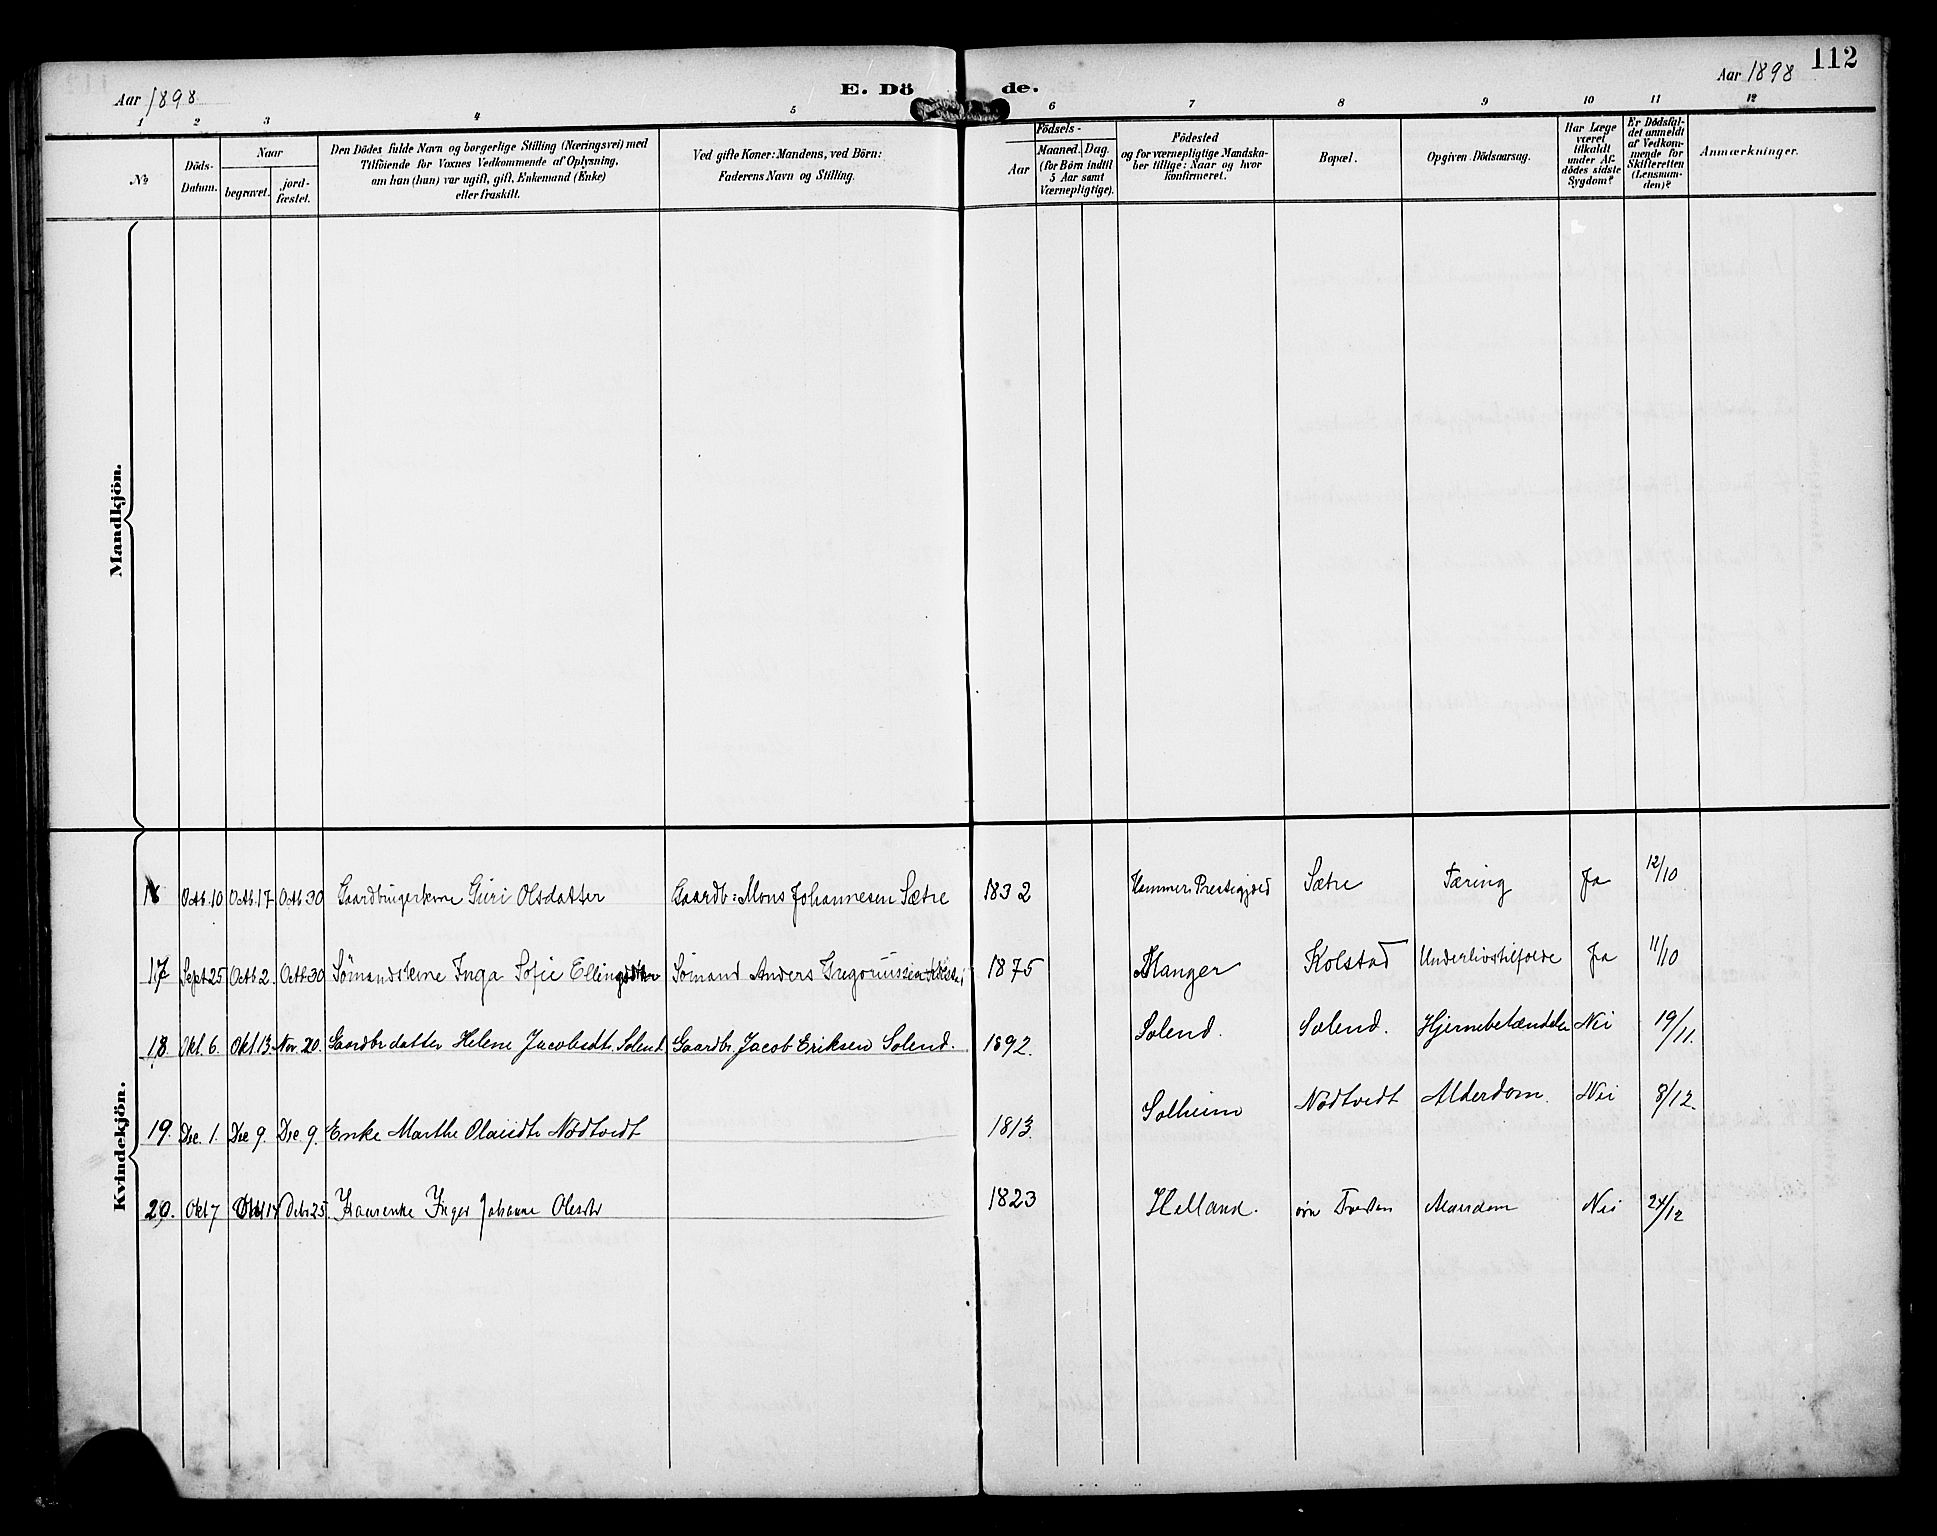 112
Aar 1898
E. Dö de.
Aar 1898
1 2 3 4 5 6 7 8 9 10 11 12
№
Döds-Datum.
Naar
begravet.
jord-fæstet.
Den Dödes fulde Navn og borgerlige Stilling (Næringsvei) med
Tilföiende för Voxnes Vedkommende af Oplysning,
om han (hun) var ugift, gift, Enkemand (Enke)
eller fraskilt.
Ved gifte Koner: Mandens, ved Börn:
Faderens Navn og Stilling.
Födsels-
Aar
Maaned. Dag.
(for Börn indtil
5 Aar samt
Værnepligtige).
Födested
og for værnepligtige Mandska-
ber tillige: Naar og hvor
konfirmeret.
Bopæl.
Opgiven Dödsaarsag.
Har Læge
været
tilkaldt
under Af-
dödes sidste
Sygdom?
Er Dödsfal-
det anmeldt
af Vedkom-
mende for
Skifteretten
(Lensman-
den)?
Anmærkninger.
Mandkjön.
Kvindekjön.
16 Octb. 10 Octb. 17 Octb 30 Gaardbrugerkone Guri Olsdatter Gaardb: Mons Johannesen Sætre 1832 Hammer Prestegjæld Sætre Tæring Ja 12/10
17 Sept 25 Octb 2. Octb 30 Sømandskone Inga Sofie Ellingsdtter Sømand Anders Gregoriussen 1875 Manger Kolstad Underlivstilfælde Ja 11/10
18. Okt. 6. Okt 13. Nov. 20. Gaardbr datter Helene Jacobsdt. Solend Gaardbr. Jacob Eriksen Solend. 1892. Solend. Solend. Hjernebetændelse Nei 19/11.
19. Dec. 1. Dec 9. Dec 9. Enke Marthe Olaisdtr Nødtvedt 1813. Solheim Nødtvedt Alderdom. Nei 8/12.
20. Okt 7 Okt 14 Debr 25 Inger Johanne Olesdtr 1823 Helland. Nei 24/12